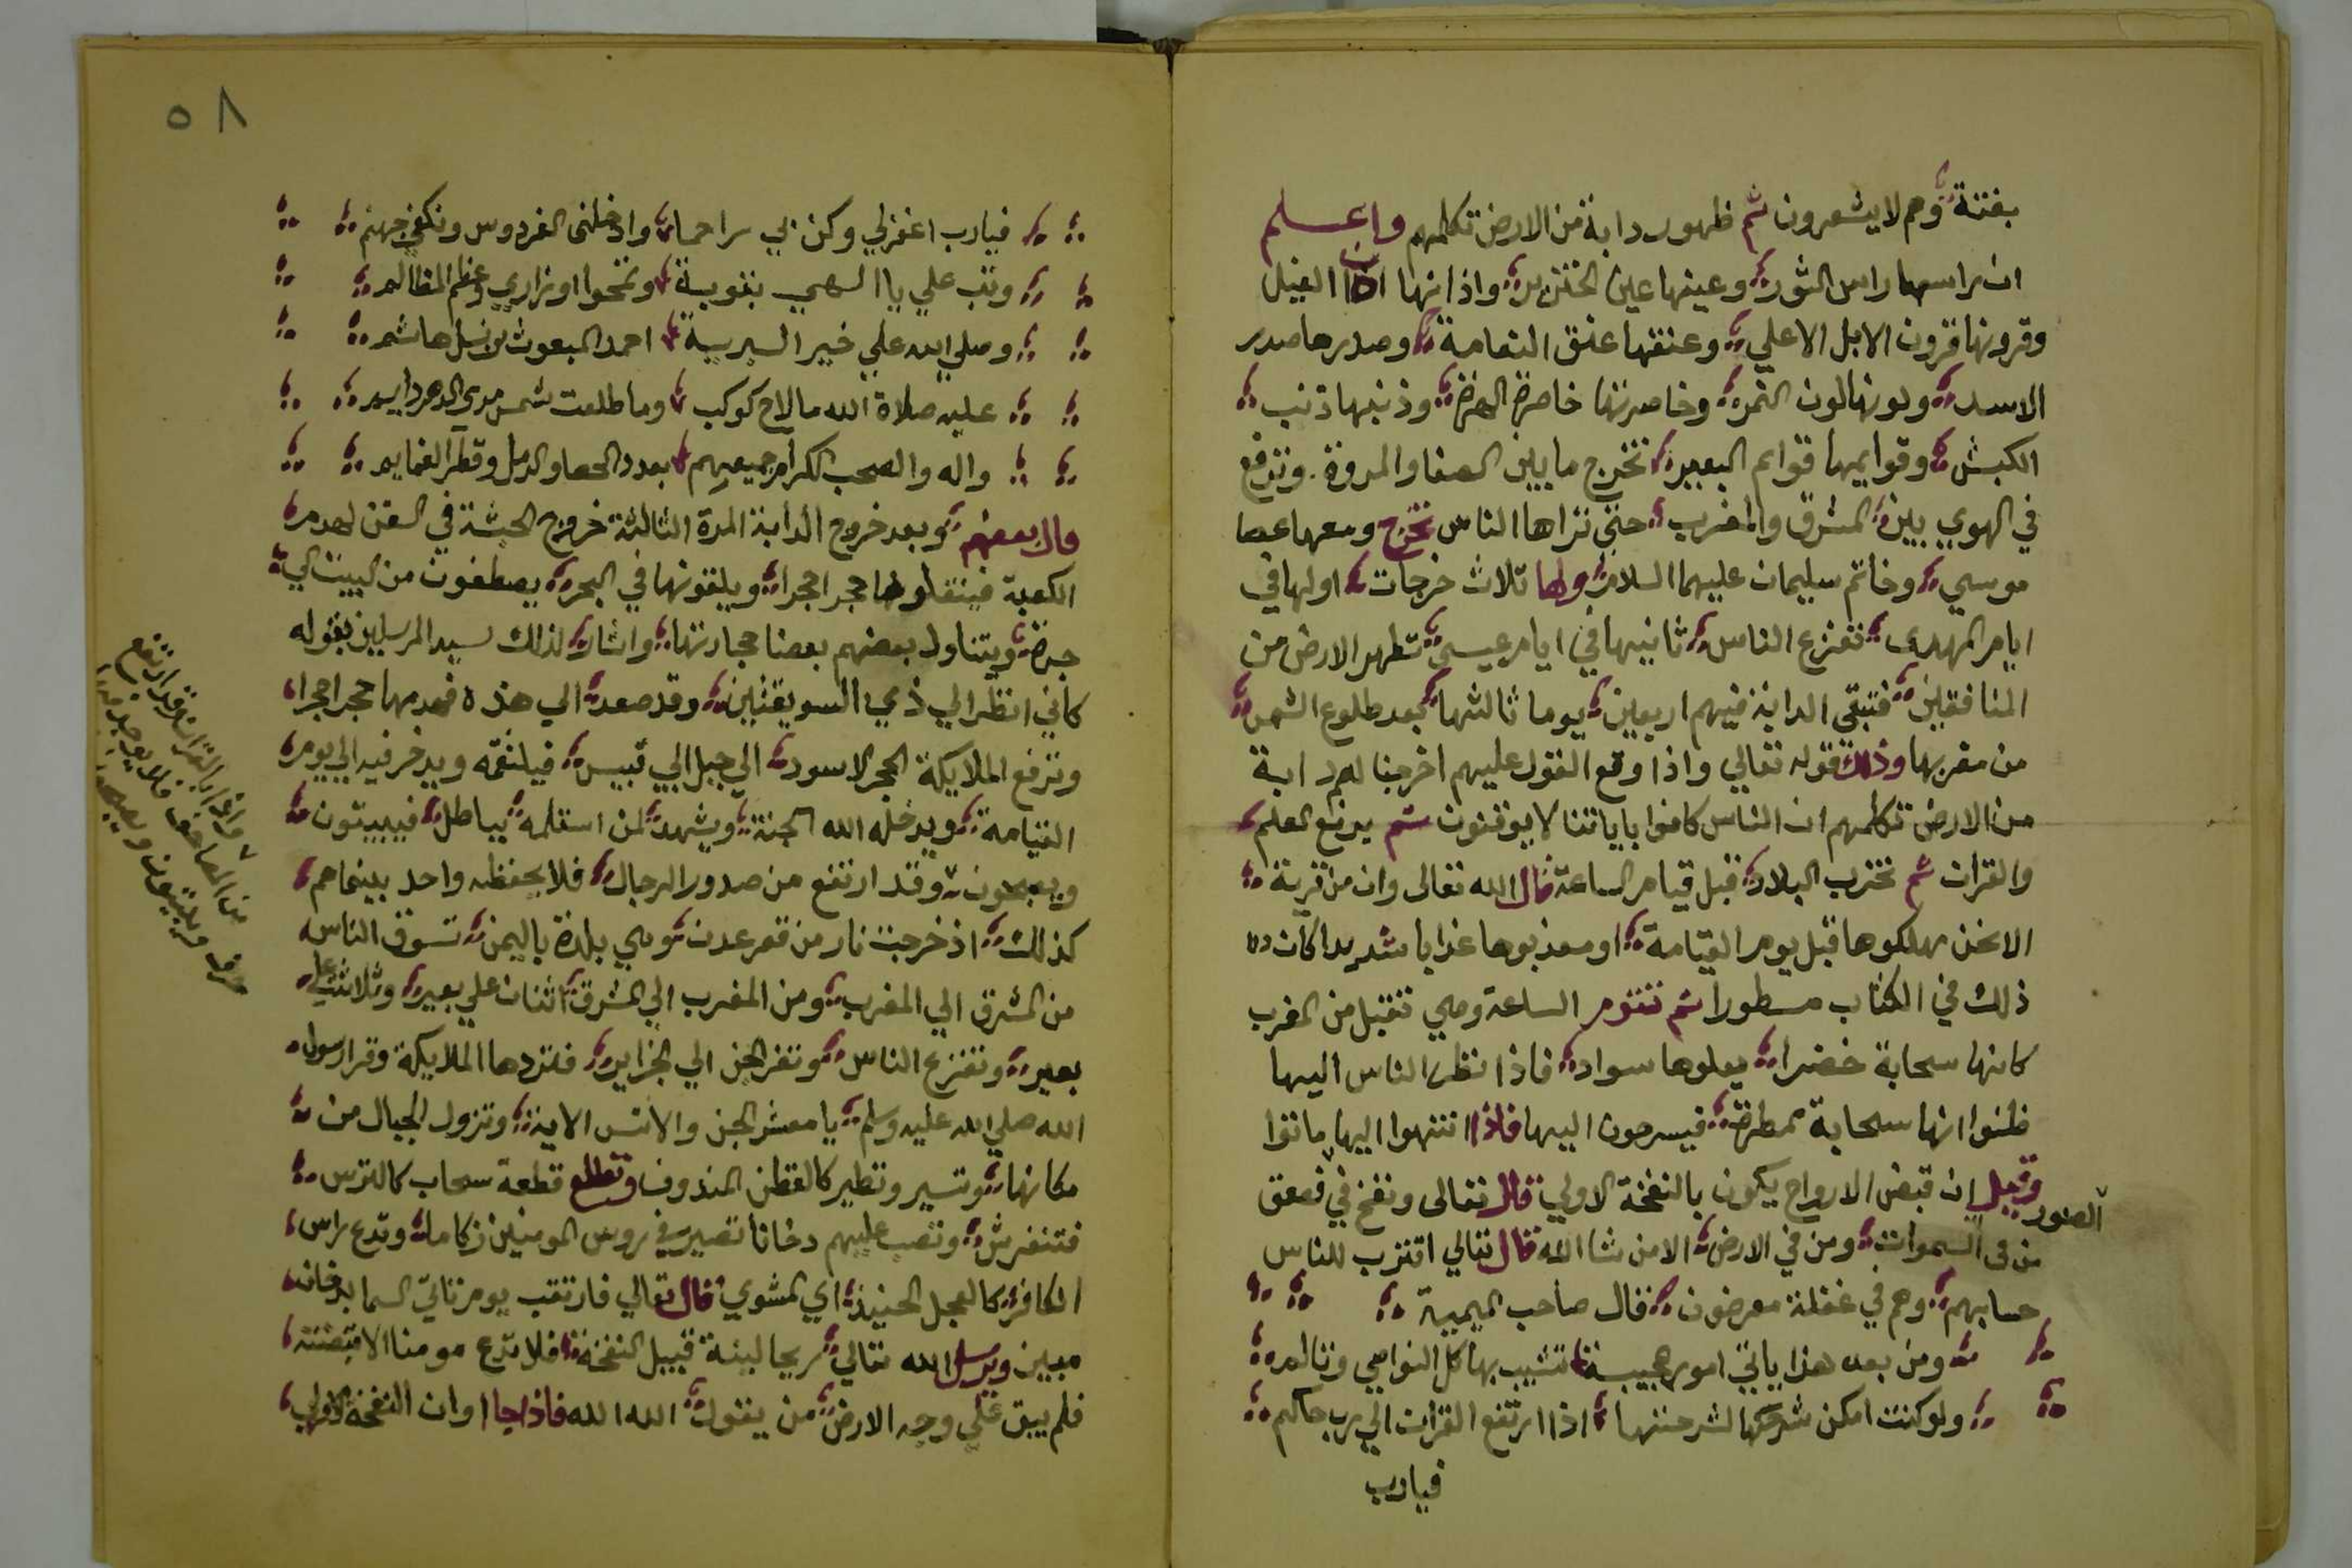 بغتة وهم لا يشعرون ثم ظهور دابة من الارض تكلمهم واعلم
ان راسها راس الثور وعينها عين الخنزير واذانها اذان الفيل
وقرونها قرون الابل الاعلي وعنقها عنق النعامة وصدرها صدر
الاسد ولونها لون النمر وخاصرتها خاصرة الهرة وذنبها ذنب
الكبش وقوايمها قوايم البعير تخرج ما بين الصفا والمروة. وترفع
في الهوي بين المشرق والمغرب حتي تراها الناس تخرج ومعها عصا
موسي وخاتم سليمان عليهما السلام ولها ثلاث خرجات اولها في
ايام المهدى تفزع الناس ثانيها في ايام عيسى تطهر الارض من
المنافقين فتبقى الدابة فيهم اربعين يوما ثالثها بعد طلوع الشمس
من مغربها وذلك قوله تعالي واذا وقع القول عليهم اخرجنا لهم دابة
من الارض تكلمهم ان الناس كانوا باياتنا لا يوقنون ثم يرفع العلم
والقران ثم تخرب البلاد قبل قيام الساعة قال الله تعالى وان من قرية
الا نحن مهلكوها قبل يوم القيامة او معذبوها عذابا شديدا كان
ذلك في الكتاب مسطورا ثم تقوم الساعة وهي تقبل من المغرب
كانها سحابة خضرا يعلوها سواد فاذا نظر الناس اليها
ظنوا انها سحابة ممطرة فيسرحون اليها فاذا انتهوا اليها ماتوا
وقيل ان قبض الارواح يكون بالنفخة الاولي قال تعالى ونفخ في فصعق
الصور
من فى السموات ومن في الارض الا من شا الله قال تعالي اقترب للناس
حسابهم وهم في غفلة معرضون قال صاحب الميمية
ومن بعد هذا ياتي امور عجيبة تشيب بها كل النواصي وتالم
ولو كنت امكن شرحها لشرحتها اذا ارتفع القران الي رب حاكم
فيارب
٥٨
فيارب اغفرلي وكن بي راحما وادخلنى الفردوس ونكفي جهنم
وتب علي يا الهي بتوبة وتمحوا اوزاري وعظم المظالم
وصلي الله علي خير البرية احمد المبعوث من نسل هاشم
عليه صلاة الله ما لاح كوكب وما طلعت شمس مدى الدهر دايم
واله والصحب الكرام جميعهم بعدد الحصا والرمل وقطر الغمايم
قال بعضهم وبعد خروج الدابة المرة الثالثة خروج الحبشة في السفن لهدم
الكعبة فينقلوها حجرا حجرا ويلقونها في البحر يصطفون من البيت الي
جدة ويتناول بعضهم بعضا حجارتها واشار لذلك سيد المرسلين بقوله
كاني انظر الي ذي السويقتين وقد صعد الي هذه فهدمها حجرا حجرا
وترفع الملايكة الحجر الاسود الي جبل ابي قبيس فيلتقمه ويدخر فيه الي يوم
القيامة ويدخله الله الجنة ويشهد لمن استلمه بباطل فيبيتون
ويصبحون وقد ارتفع من صدور الرجال فلا يحفظه واحد بينما هم
كذلك اذ خرجت نار من قعر عدن وهي بلدة باليمن تسوق الناس
من المشرق الي المغرب ومن المغرب الي المشرق اثنان علي بعير وثلاثة علي
بعير وتفزع الناس وتفر الجن الي الجزاير فتردها الملايكة وقرا رسول
الله صلي الله عليه وسلم يا معشر الجن والانس الاية وتزول الجبال من
مكانها وتسير وتطير كالقطن المندوف وتطلع قطعة سحاب كالترس
فتنفرش وتصب عليهم دخانا تصير في روس المومنين زكاما وتدع راس
الكافر كالعجل الحنيذ اي المشوي قال تعالي فارتقب يوم تاتي السما بدخان
مبين ويرسل الله تعالي ريحا لينة قبيل النفخة فلا تدع مومنا الا قبضته
فلم يبق علي وجه الارض من يقول الله الله فاذا جا اوان النفخة الاولي
واذا بالقران قد ارتفع
من المصاحف فلا يوجد فيها
حرف ويبيتون ويصبحون